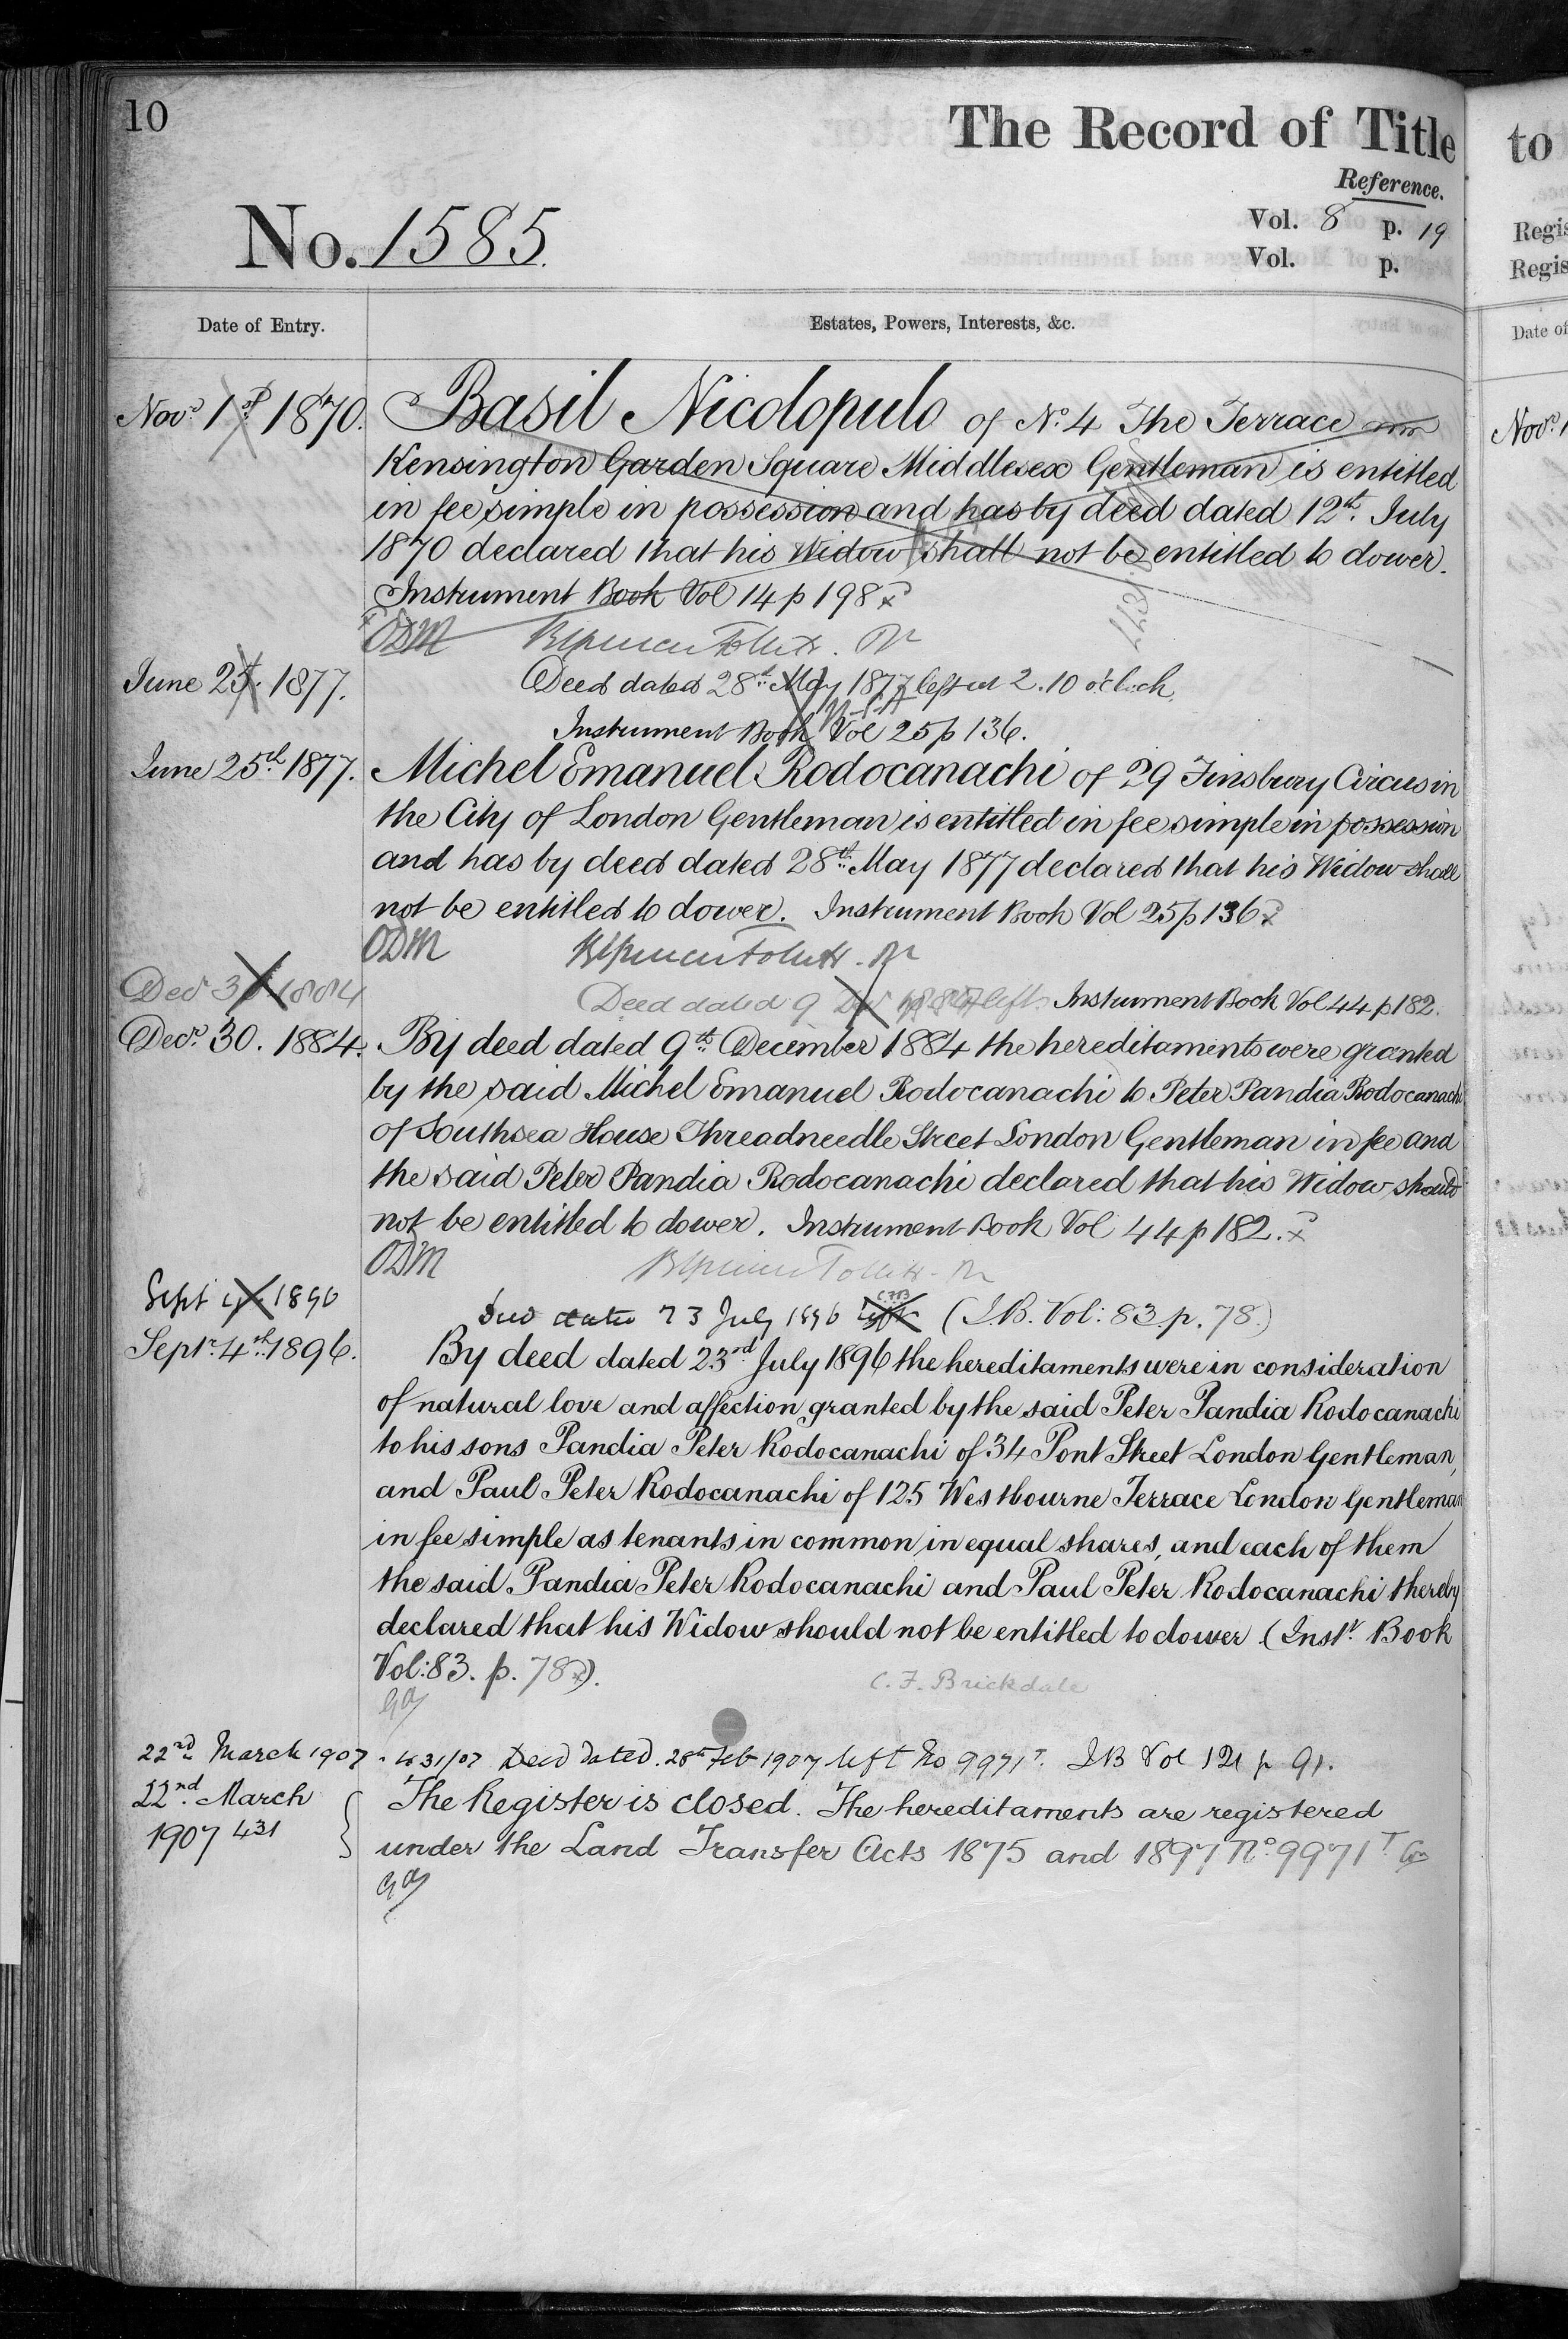 10
The Record of Title
Reference.
No. 1585.
Vol. 8 p. 19
Vol. p.
Date of Entry.
Estates, Powers, Interests, &c.
Novr 1st 1870. Basil Nicolopulo of No. 4 The Terrace
Kensington Garden Square Middlesex Gentleman is entitled
in fee simple in possession and has by deed dated 12th. July
1870 declared that his Widow shall not be entitled to dower.
Instrument Book Vol 14 p 198
ODM
June 25. 1877. Deed dated 28th. May 1877 left at 2.10 o'clock.
Instrument Book Vol 25 p 136.
June 25th 1877. Michel Emanuel Rodocanachi of 29 Finsbury Circus in
the City of London Gentleman is entitled in fee simple in possession
and has by deed dated 28th. May 1877 declared that his Widow shall
not be entitled to dower. Instrument Book Vol 25 p 136
ODM
Decr 30. 1884 Deed dated 9 Decr left. Instrument Book Vol 44 p 182.
Decr. 30. 1884. By deed dated 9th. December 1884 the hereditaments were granted
by the said Michel Emanuel Rodocanachi to Peter Pandia Rodocanachi
of Southsea House Threadneedle Street London Gentleman in fee and
the said Peter Pandia Rodocanachi declared that his Widow should
not be entitled to dower. Instrument Book Vol 44 p 182.
ODM
Sept 1896 Deed dated 23 July 1896 left (I.B. Vol: 83 p. 78.)
Septr. 4th 1896. By deed dated 23rd July 1896 the hereditaments were in consideration
of natural love and affection granted by the said Peter Pandia Rodocanachi
to his sons Pandia Peter Rodocanachi of 34 Pont Street London Gentleman,
and Paul Peter Rodocanachi of 125 Westbourne Terrace London Gentleman
in fee simple as tenants in common in equal shares, and each of them
the said Pandia Peter Rodocanachi and Paul Peter Rodocanachi thereby
declared that his Widow should not be entitled to dower. (Instt. Book
Vol: 83. p. 78).
C. F. Brickdale
22nd March 1907. Deed dated. 28th Feb 1907 left No 9971T. IB Vol 121 p 91.
22nd. March The Register is closed. The hereditaments are registered
1907 431 under the Land Transfer Acts 1875 and 1897 No. 9971T
to
Regis
Regis
Date of
Novr 1